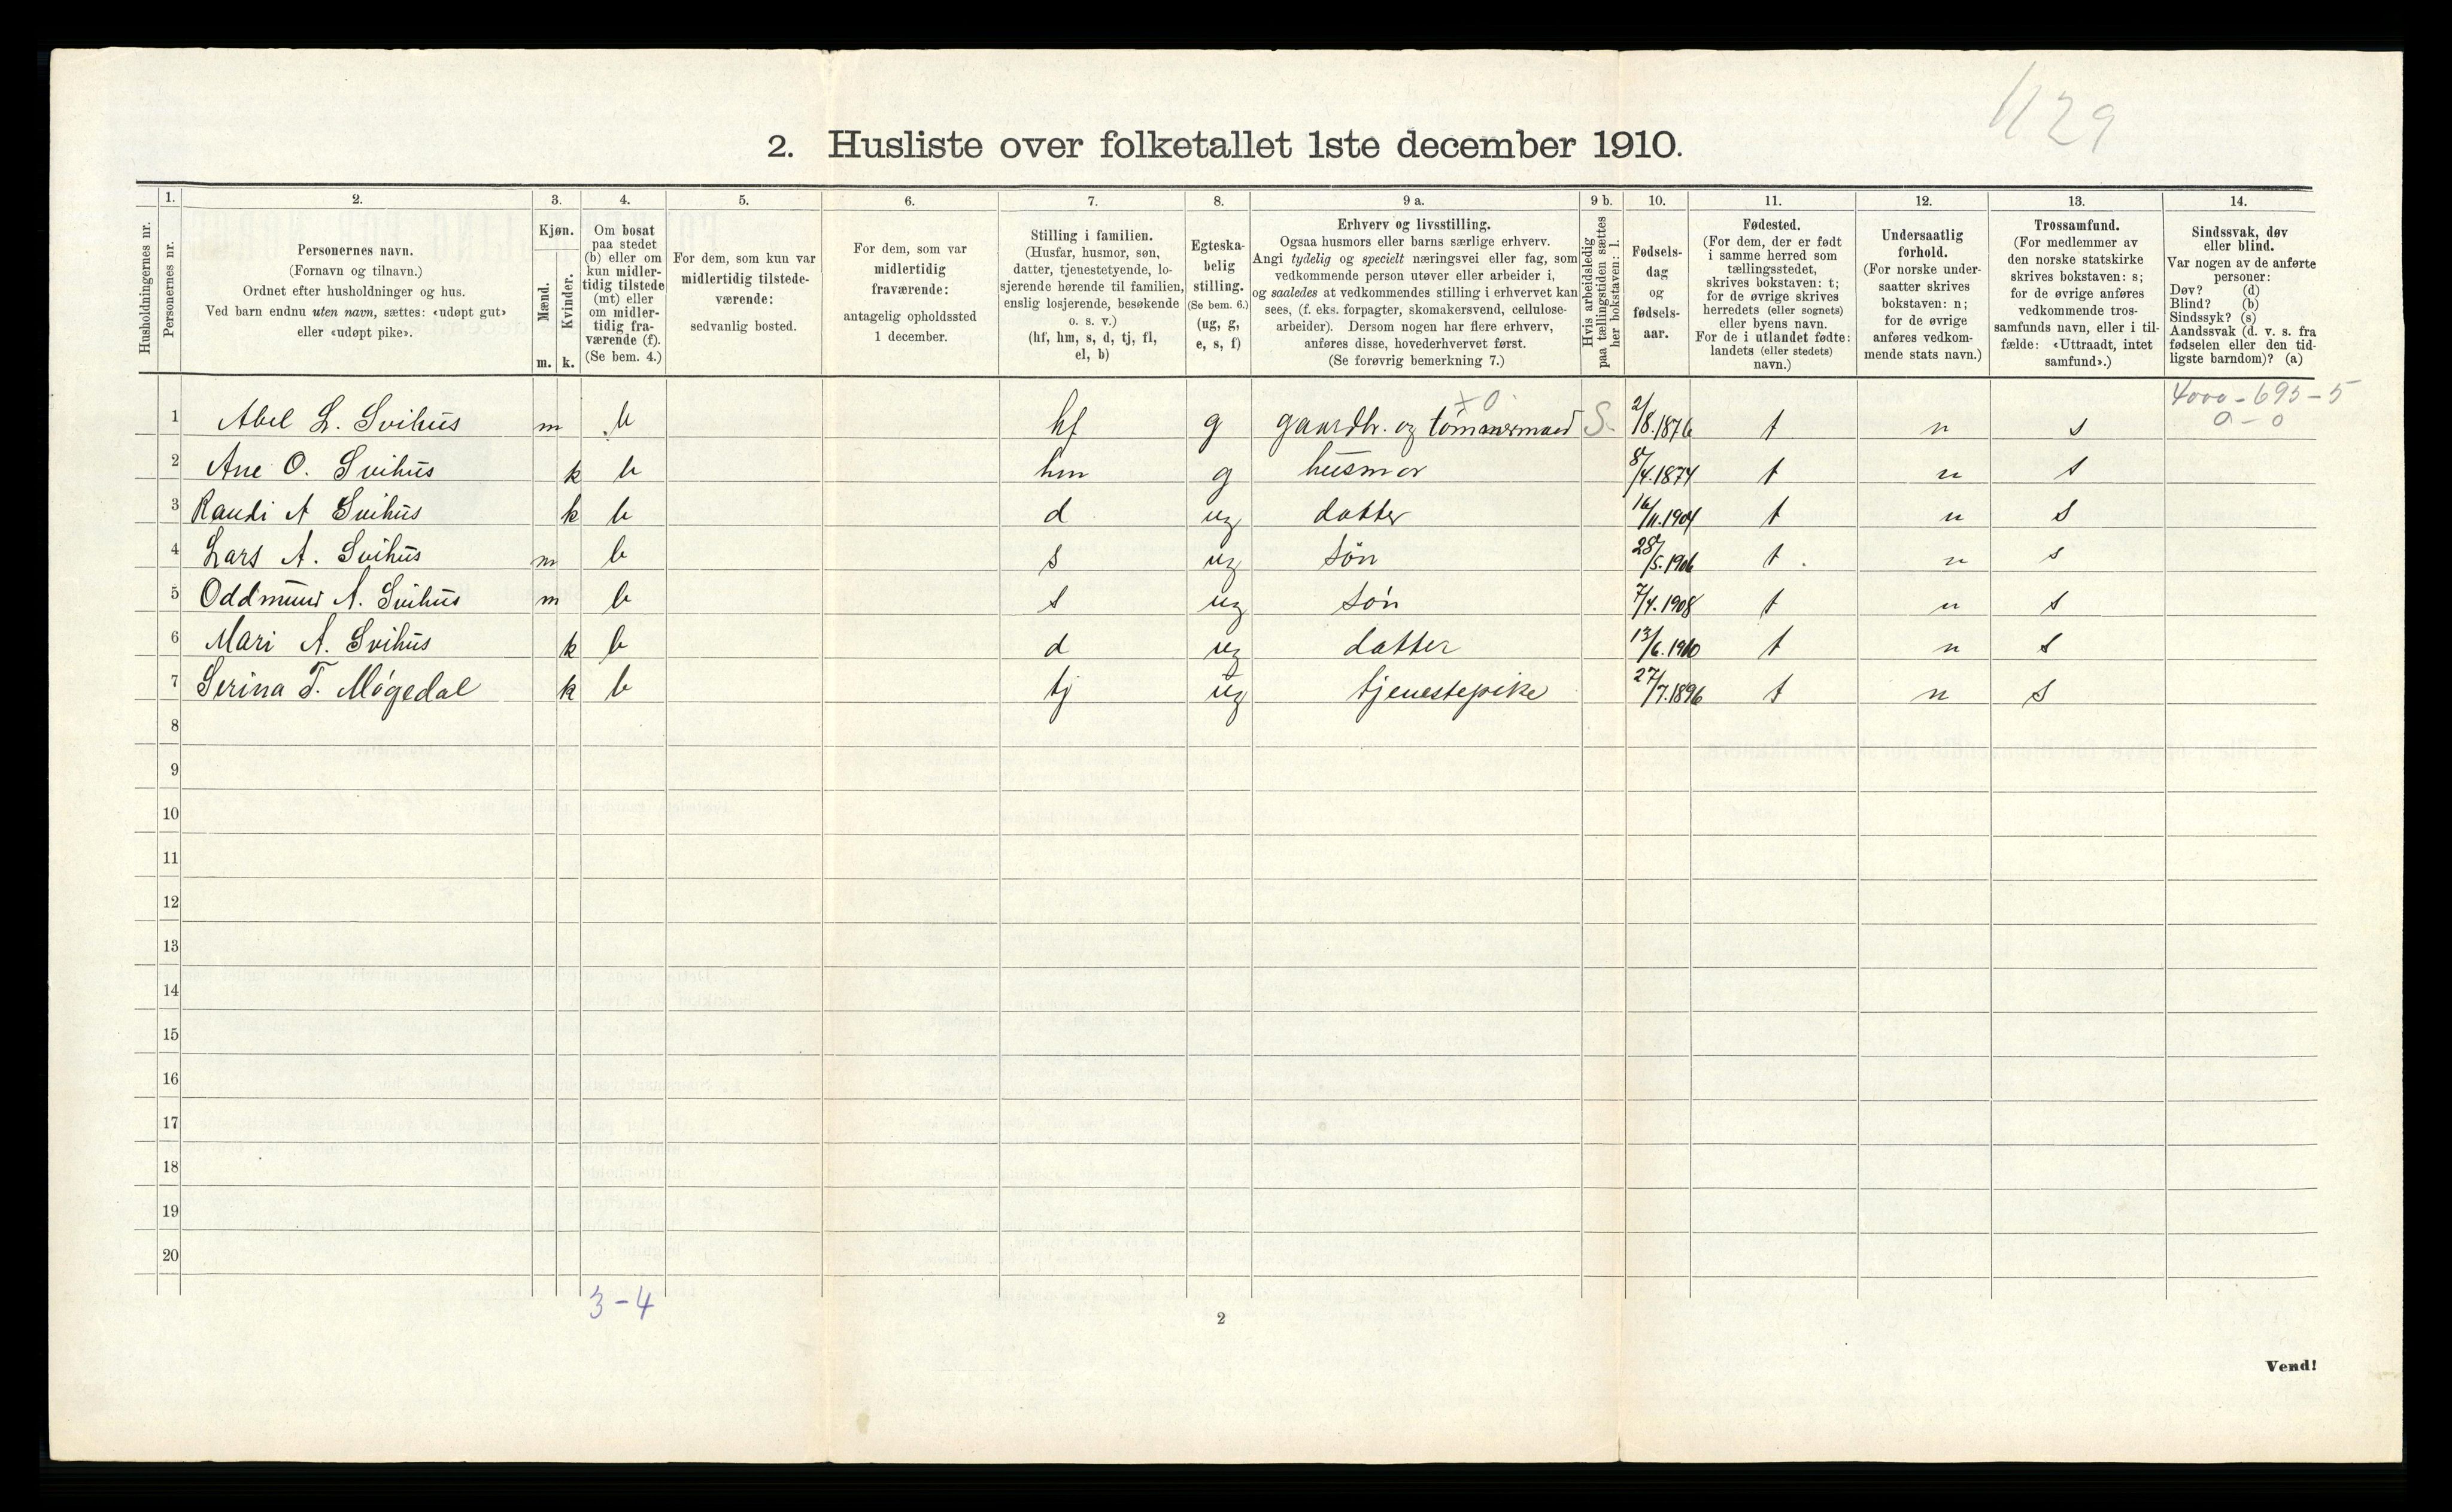 1129
2. Husliste over folketallet 1ste december 1910.
Husholdningernes nr.
1. Personernes nr.
2. Personernes navn.
(Fornavn og tilnavn.)
Ordnet efter husholdninger og hus.
Ved barn endnu uten navn, sættes: «udøpt gut»
eller «udøpt pike».
3. Kjøn.
Mænd. m.
Kvinder. k.
4. Om bosat
paa stedet
(b) eller om
kun midler-
tidig tilstede
(mt) eller
om midler-
tidig fra-
værende (f).
(Se bem. 4.)
5. For dem, som kun var
midlertidig tilstede-
værende:
sedvanlig bosted.
6. For dem, som var
midlertidig
fraværende:
antagelig opholdssted
1 december.
7. Stilling i familien.
(Husfar, husmor, søn,
datter, tjenestetyende, lo-
sjerende hørende til familien,
enslig losjerende, besøkende
o. s. v.)
(hf, hm, s, d, tj, fl,
el, b)
8. Egteska-
belig
stilling.
(Se bem. 6.)
(ug, g,
e, s, f)
9 a. Erhverv og livsstilling.
Ogsaa husmors eller barns særlige erhverv.
Angi tydelig og specielt næringsvei eller fag, som
vedkommende person utøver eller arbeider i,
og saaledes at vedkommendes stilling i erhvervet kan
sees, (f. eks. forpagter, skomakersvend, cellulose-
arbeider). Dersom nogen har flere erhverv,
anføres disse, hovederhvervet først.
(Se forøvrig bemerkning 7.)
9 b. Hvis arbeidsledig
paa tællingstiden sættes
her bokstaven: l.
10. Fødsels-
dag
og
fødsels-
aar.
11. Fødested.
(For dem, der er født
i samme herred som
tællingsstedet,
skrives bokstaven: t;
for de øvrige skrives
herredets (eller sognets)
eller byens navn.
For de i utlandet fødte:
landets (eller stedets)
navn.)
12. Undersaatlig
forhold.
(For norske under-
saatter skrives
bokstaven: n;
for de øvrige
anføres vedkom-
mende stats navn.)
13. Trossamfund.
(For medlemmer av
den norske statskirke
skrives bokstaven: s;
for de øvrige anføres
vedkommende tros-
samfunds navn, eller i til-
fælde: «Uttraadt, intet
samfund».)
14. Sindssvak, døv
eller blind.
Var nogen av de anførte
personer:
Døv? (d)
Blind? (b)
Sindssyk? (s)
Aandssvak (d. v. s. fra
fødselen eller den tid-
ligste barndom)? (a)
+0. 4000-695-5
0-0
1 Abel L. Svihus m b hf g gaardbr. og tømmermand S. 2/8.1876 t n s
2 Ane O. Svihus k b hm g husmor 8/4.1874 t n s
3 Raudi A Svihus k b d ug datter 16/11.1904 t n s
4 Lars A. Svihus m b s ug søn 28/5.1906 t n s
5 Oddmund A. Svihus m b s ug søn 7/4.1908 t n s
6 Mari A. Svihus k b d ug datter 13/6.1910 t n s
7 Serina T. Møgedal k b tj ug tjenestepike 27/7.1896 t n s
8
9
10
11
12
13
14
15
16
17
18
19
20
3-4
2
Vend!